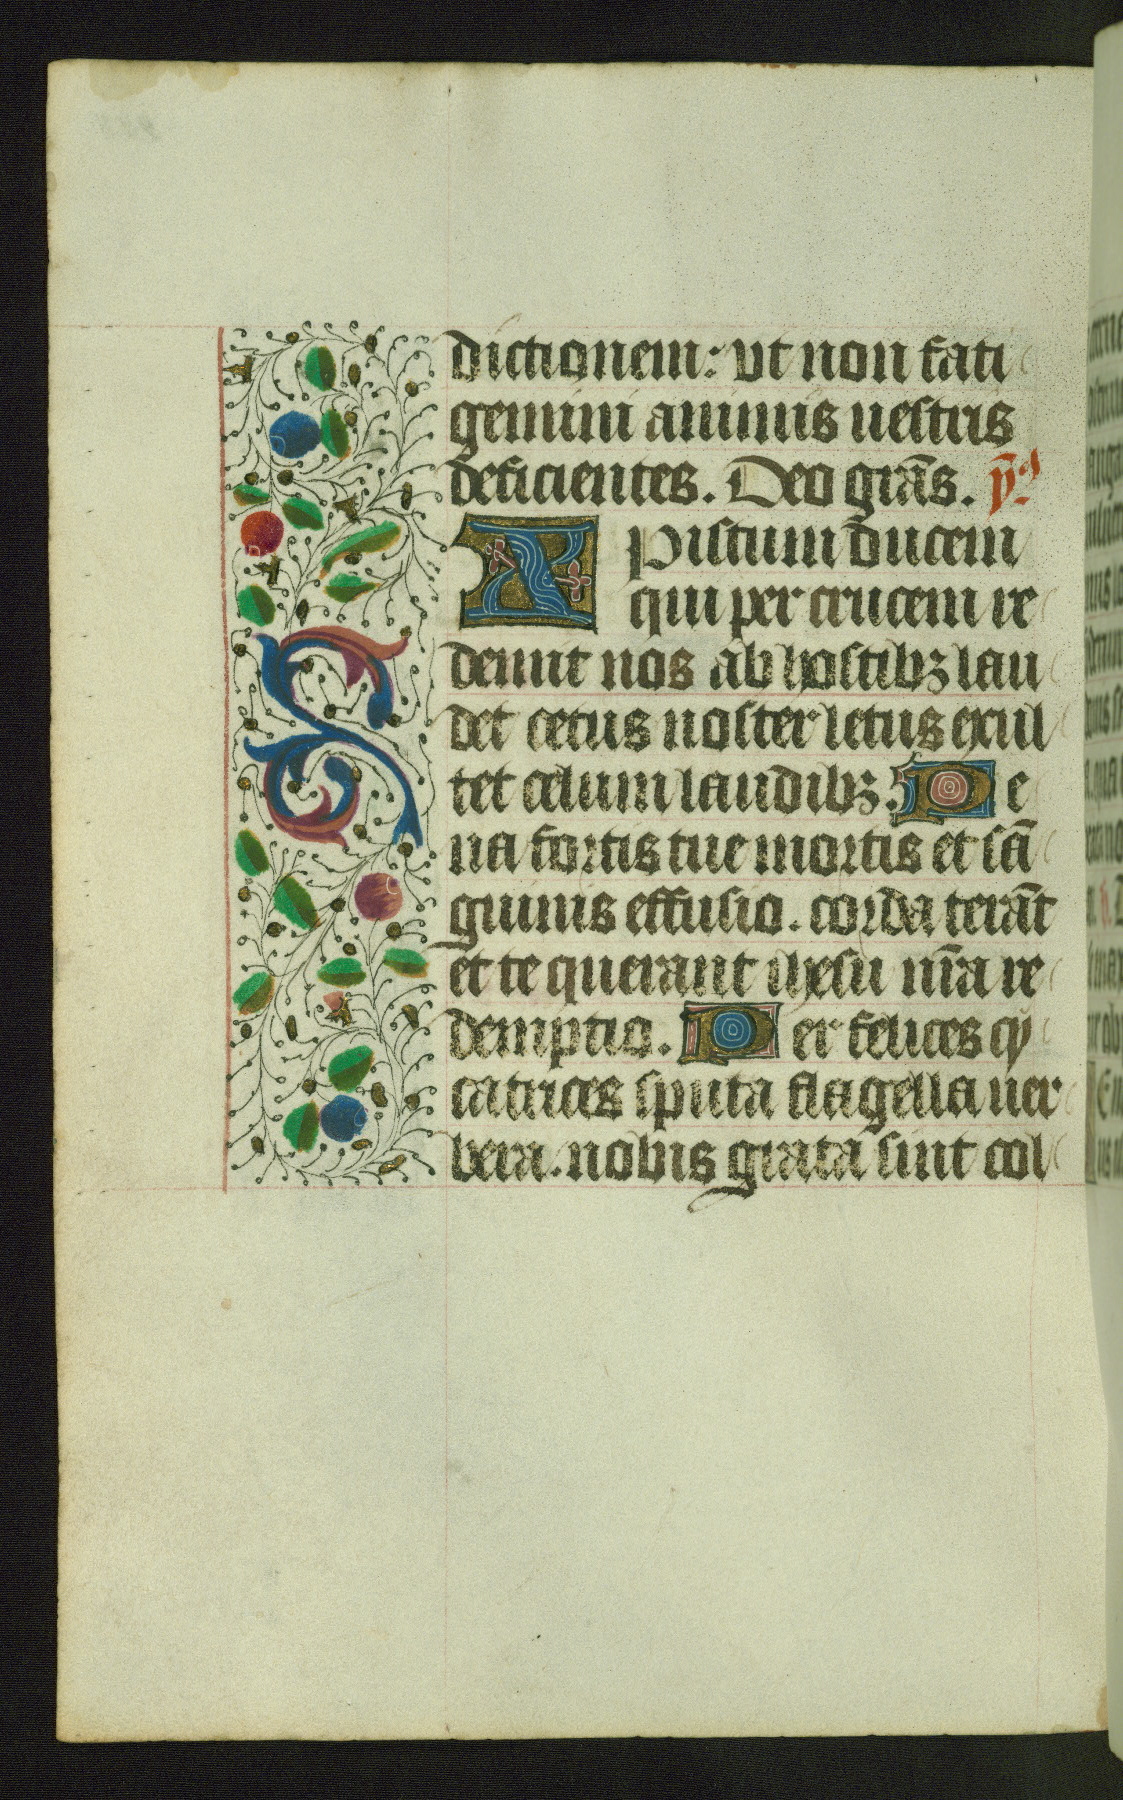 dictionem: ut non fati
gemini animis uestris
deficientes. Deo grās. ẏmꝰ
Xpistum ducem
qui per crucem re
demit nos ab hostibꝫ lau
det cetus noster letus exul
tet celum laudibꝫ. Pe
na fortis tue mortis et sā
guinis effusio. corda terāt
et te querant ihesu nr̄a re
demptio. Per felices cy
catrices sputa flagella uer
bera. nobis grata sint col